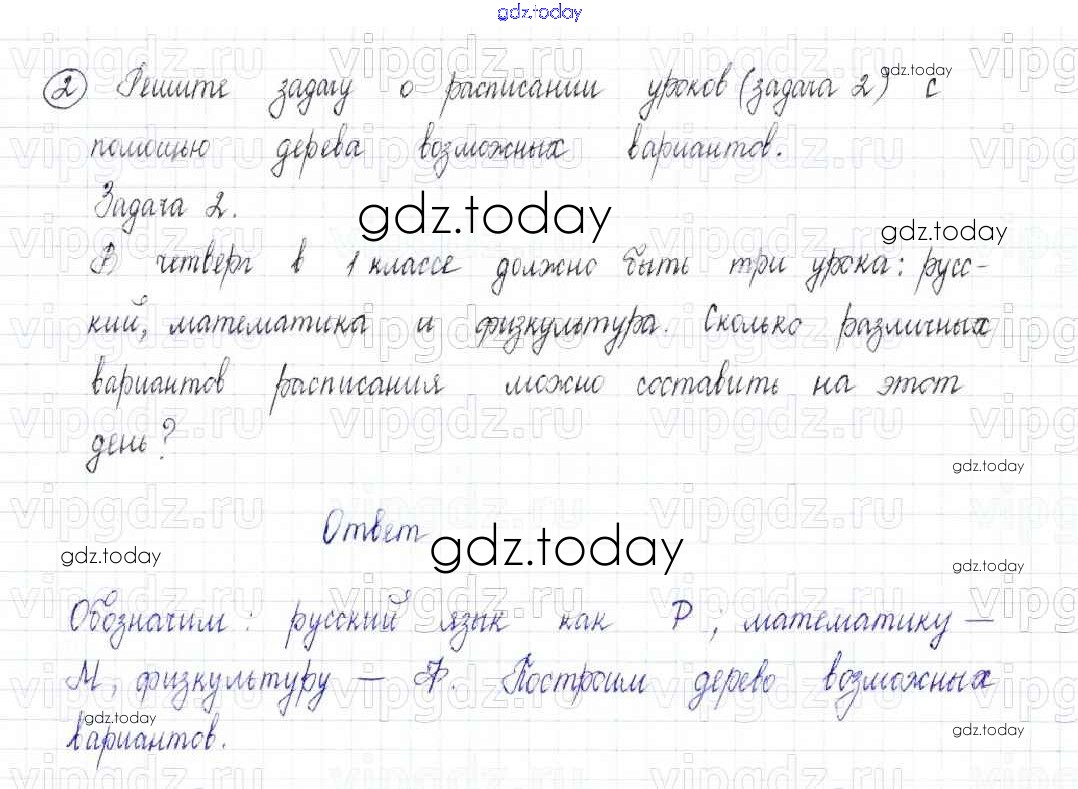 gdz.today
② Решите задачу о расписании уроков (задача 2) с
помощью дерева возможных вариантов.
Задача 2.
В четверг в 1 классе должно быть три урока: русс-
кий, математика и физкультура. Сколько различных
вариантов расписания можно составить на этот
день?
Ответ
Обозначим: русский язык как Р; математику —
М, физкультуру — Ф. Построим дерево возможных
вариантов.
gdz.today
gdz.today
gdz.today
gdz.today
gdz.today
gdz.today
gdz.today
gdz.today
gdz.today
vipgdz.ru